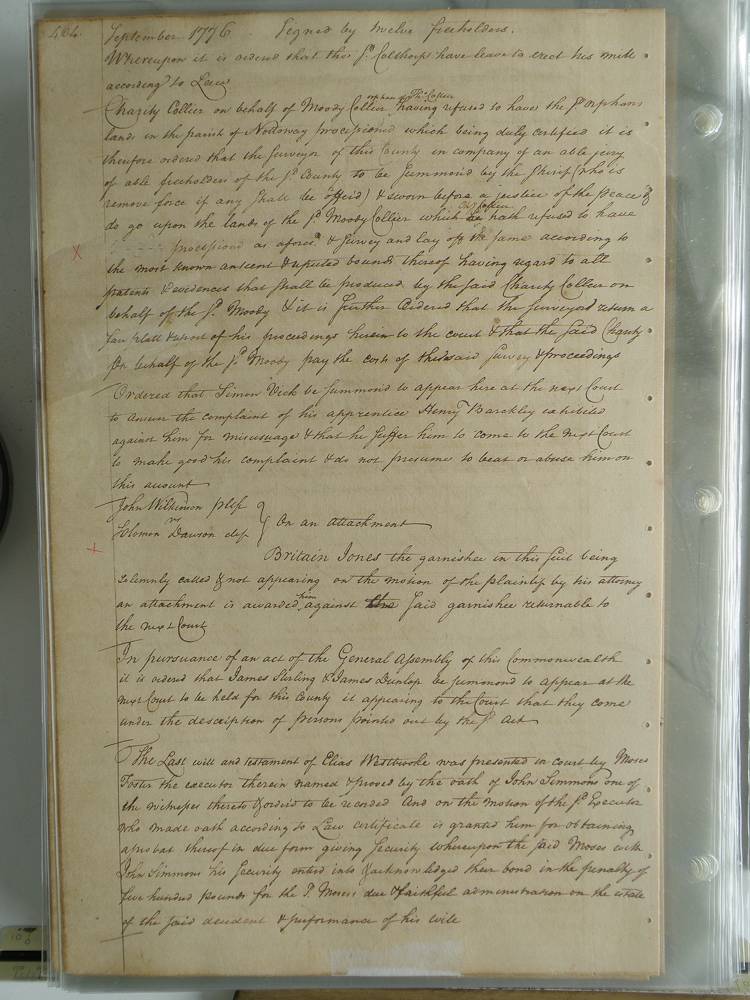 464. September 1776. Signed by twelve freeholders.
Whereupon it is ordered that the sd. Colthorp have leave to erect his mill
according to Law
Charity Collier on behalf of Moody Collier orphan of Thos. Collier having refused to have the sd. Orphans
land in the parish of Nottoway processioned which being duly certified it is
therefore ordered that the Surveyor of this County in company of an able jury
of able freeholders of the sd. County to be summond by the Sherif (who is
remove force if any shall be offerd) & sworn before a justice of the peace
do go upon the lands of the sd. Moody Collier which Chy Collier hath refused to have
processiond as aforesd. & survey and lay off the same according to
the most known antient & reputed bounds thereof having regard to all
patents & evidences that shall be produced by the said Charity Collier on
behalf of the sd. Moody & it is further Ordered that the surveyor return a
fair platt & report of his proceedings herein to the court & that the said Charity
on behalf of the sd. Moody pay the costs of the said survey & proceedings
Ordered that Simon Vick be summond to appear here at the next Court
to answer the complaint of his apprentice Henry Barckley exhibited
against him for misusuage & that he suffer him to come to the next Court
to make good his complaint & do not presume to beat or abuse him on
this account
John Wilkinson pltf
vs
Solomon Dawson deft } On an attachment
Britain Jones the garnishee in this suit being
solemnly called & not appearing on the motion of the plaintif by his attorney
an attachment is awarded him against the said garnishee returnable to
the next Court
In pursuance of an act of the General Assembly of this Commonwealth
it is ordered that James Stirling & James Dunlop be summond to appear at the
next Court to be held for this County it appearing to the Court that they come
under the description of persons pointed out by the sd. Act
The Last will and testament of Elias Westbrooke was presented in court by Moses
Foster the executor therein named & proved by the oath of John Simmons one of
the witnesses thereto & orderd to be recorded And on the motion of the sd. Executor
who made oath according to Law certificate is granted him for obtaining
a probat thereof in due form giving security whereupon the said Moses with
John Simmons his security entred into & acknowledged their bond in the penalty of
five hundred pounds for the sd. Moses's due & faithful administration on the estate
of the said decedent & performance of his will